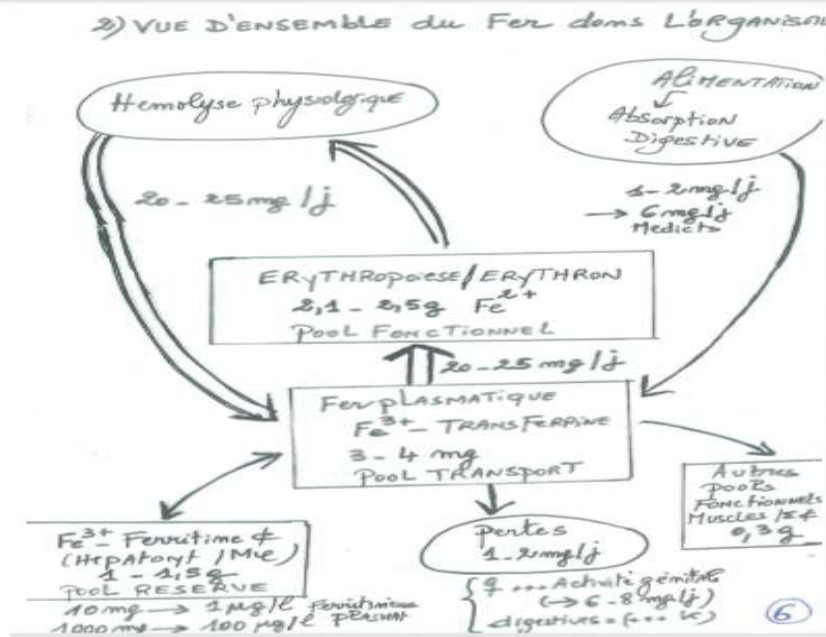 2) VUE D'ENSEMBLE du Fer dans L'ORGANISM
Hemolyse physiologique
ALIMENTATION
Absorption
Digestive
20 - 25 mg/j
1 - 2 mg/j
→ 6 mg/j
Medicts
ERYTHROPOIESE/ERYTHRON
2,1 - 2,5g Fe2+
POOL FONCTIONNEL
20-25 mg/j
Fer PLASMATIQUE
Fe3+ - TRANSFERRINE
3 - 4 mg
POOL TRANSPORT
Autres
POOLS
FONCTIONNELS
MUSCLES /
0,3 g
Fe3+ Ferritine
(HEPATOCYT / Mø)
1 - 1,5g
POOL RESERVE
10 mg → 1 µg/l Ferritinémie
1000 mg → 100 µg/l PLASMAT
Pertes
1-2 mg/j
♀ ... Activité génitale
(→ 6-8 mg/j)
digestives =
6